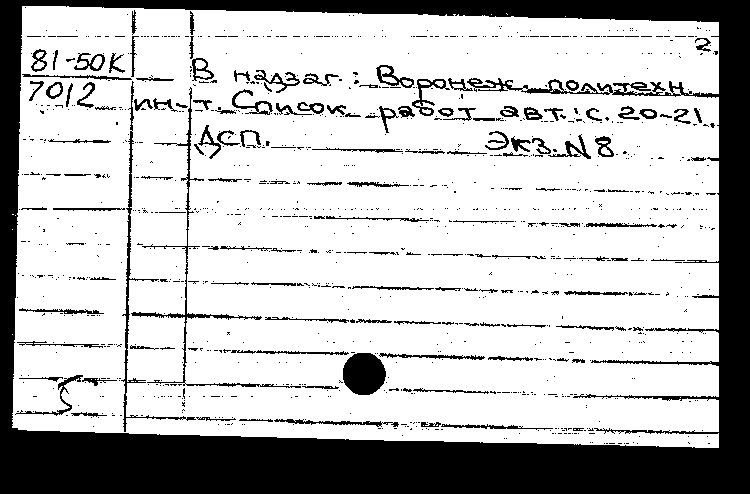 2.
81-50К В надзаг.: Воронеж. политехн.
7012 ин-т. Список работ авт.: с. 20-21.
ДСП. Экз. N 8.
5